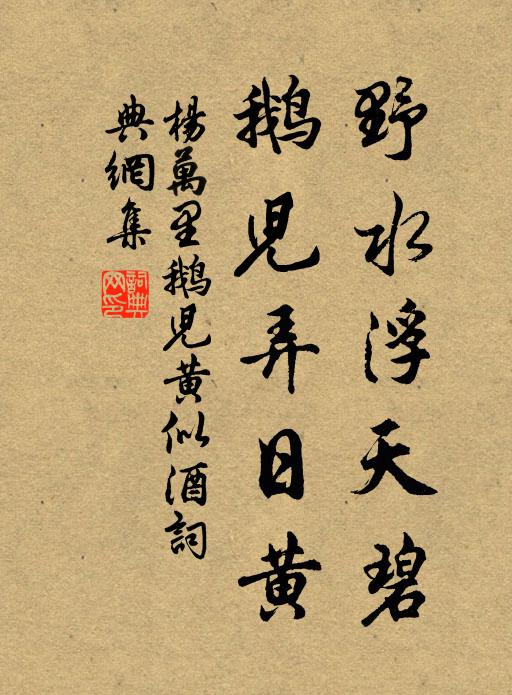 野水浮天碧
鵝兒弄日黄
楊萬里鵝兒黄似酒詞
典網集
詞典
网印